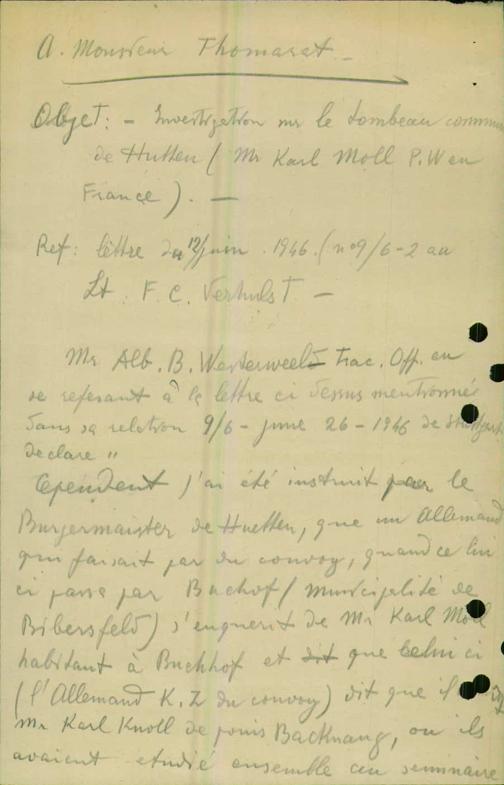 A. Monsieur Thomaset -
Objet: - Investigation sur le tombeau commun
de Hutten ( Mr Karl Moll P.W en
France ). -
Ref: lèttre du 12/juin . 1946. ( no 9/6-2 au
Lt. F. C. Verhulst -
Mr Alb. B. Westerweeld Trac. Off. en
se referant à la lettre ci dessus mentionnée
dans sa relation 9/6 - june 26 - 1946 de Stuttgart
declare "
Cependent j'ai été instruit par le
Burgermaister de Huetten, que un Allemand
qui faisait par du convoy, quand ce lui
ci passe par Buchof ( municipalité de
Bibersfeld) s'enquerit de Mr Karl Moll
habitant à Buchhof et dit que celui ci
( l'Allemand K. Z du convoy ) dit que il
Mr Karl Knoll de Backnang, ou ils
avaient etudié ensemble au seminaire